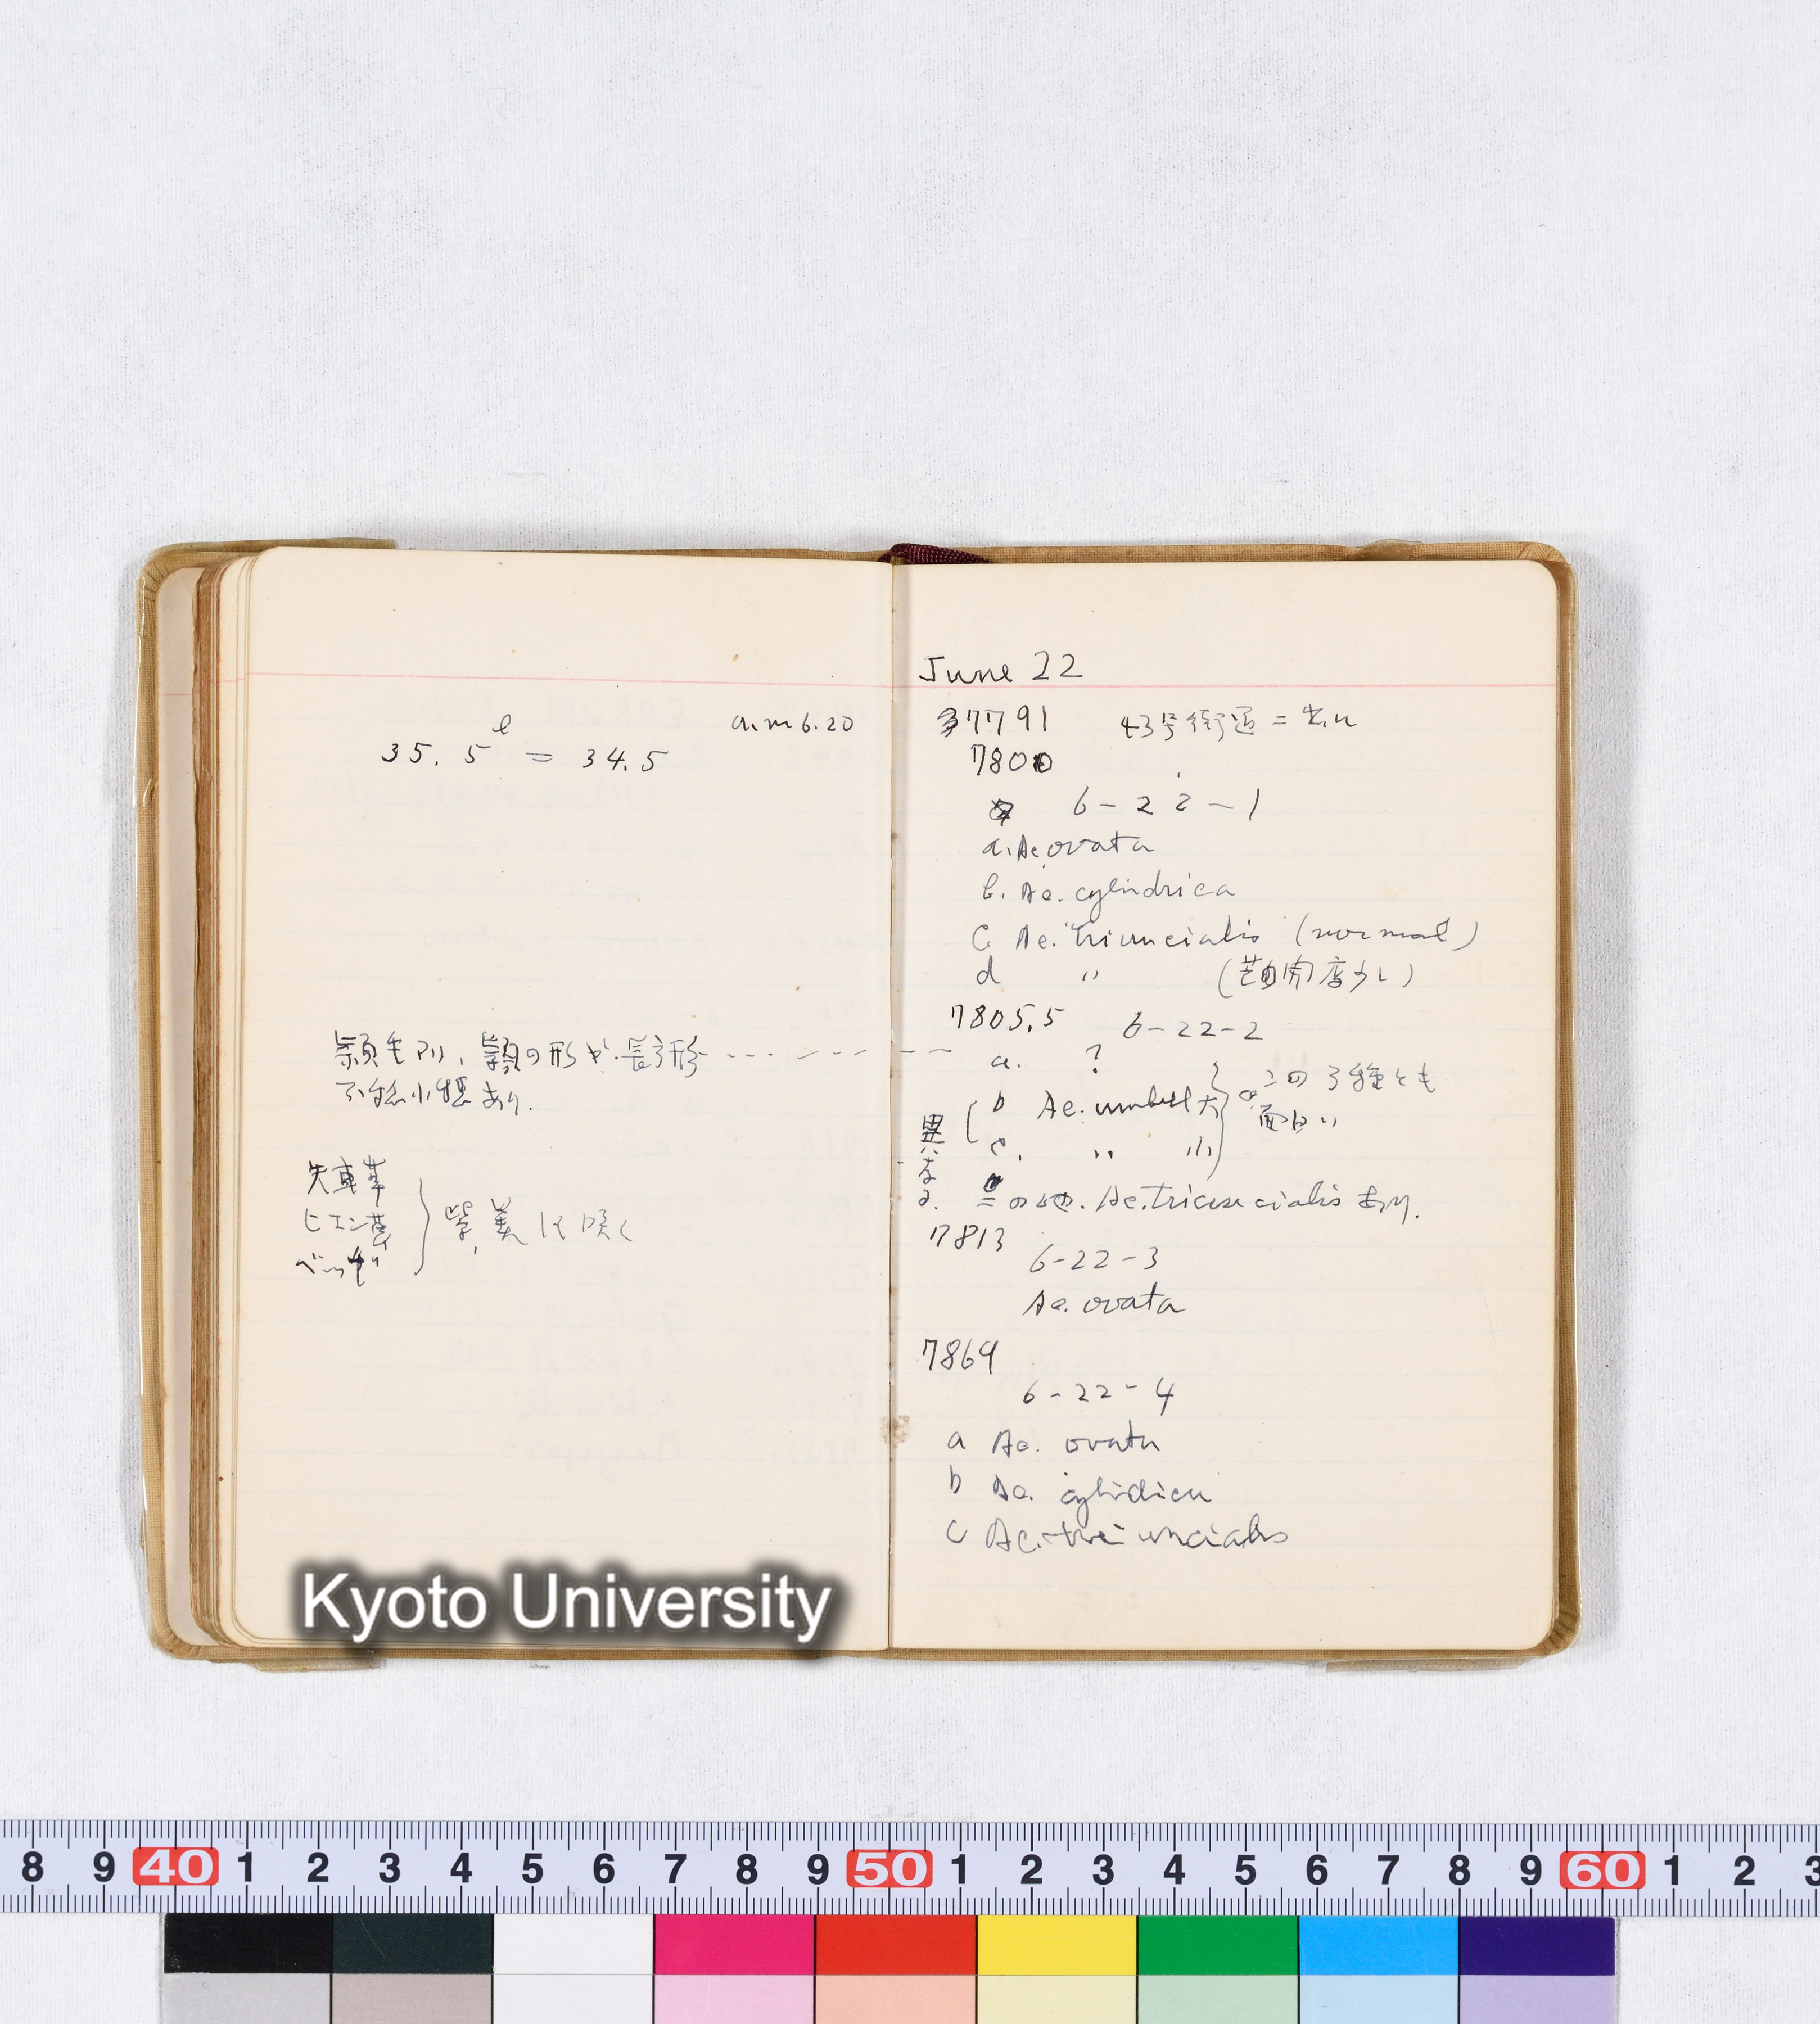 a.m 6.20
35.5 l = 34.5
頴毛アリ、頴の形が長方形
不稔小穂あり.
矢車草
ヒエン草
紫、美しく咲く
June 22
7791 43号街道ニ出ル
7800
6-22-1
a. Ae. ovata
b. Ae. cylindrica
c. Ae. triuncialis (normal)
d 〃 (芒開度少し)
7805.5 6-22-2
a. ?
b Ae. umbell 大
c. 〃 小
この3種とも
面白い
異なる.
この他. Ae. triuncialis あり.
7813
6-22-3
Ae. ovata
7869
6-22-4
a Ae. ovata
b Ae. cylindrica
c Ae. triuncialis
Kyoto University
8 9 40 1 2 3 4 5 6 7 8 9 50 1 2 3 4 5 6 7 8 9 60 1 2 3